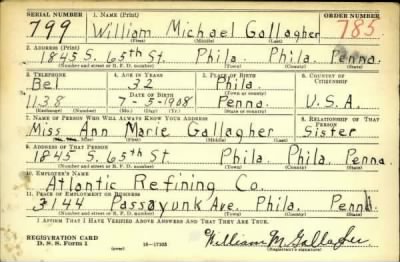 SERIAL NUMBER 1. NAME (Print) ORDER NUMBER
799 William Michael Gallagher 785
(First) (Middle) (Last)
2. ADDRESS (Print)
1845 S. 65th St. Phila. Phila. Penna.
(Number and street or R. F. D. number) (Town) (County) (State)
3. TELEPHONE 4. AGE IN YEARS 5. PLACE OF BIRTH 6. COUNTRY OF CITIZENSHIP
Bel 32 Phila.
(Town or county)
1138 7-5-1908 Penna. U.S.A.
(Exchange) (Number) (Mo.) (Day) (Yr.) (State or country)
7. NAME OF PERSON WHO WILL ALWAYS KNOW YOUR ADDRESS 8. RELATIONSHIP OF THAT PERSON
Miss Ann Marie Gallagher Sister
(First) (Middle) (Last)
9. ADDRESS OF THAT PERSON
1845 S. 65th St. Phila. Phila. Penna.
(Number and street or R. F. D. number) (Town) (County) (State)
10. EMPLOYER'S NAME
Atlantic Refining Co.
11. PLACE OF EMPLOYMENT OR BUSINESS
3144 Passayunk Ave. Phila. Penna
(Number and street or R. F. D. number) (Town) (County) (State)
I AFFIRM THAT I HAVE VERIFIED ABOVE ANSWERS AND THAT THEY ARE TRUE.
REGISTRATION CARD
D. S. S. Form 1 (over) 16-17105 William M. Gallagher
(Registrant's signature)